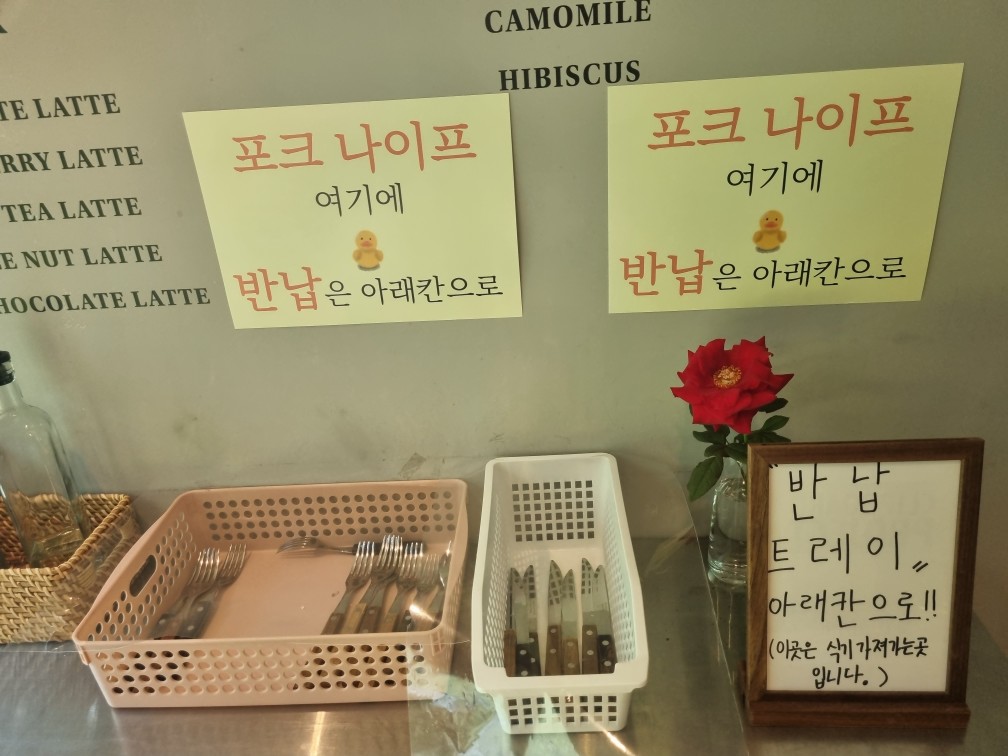 CAMOMILE
HIBISCUS
LATTE
LATTE
TEA LATTE
NUT LATTE
LATTE
포크 나이프
여기에
반납은 아래칸으로
포크 나이프
여기에
반납은 아래칸으로
"반 납
트레이"
아래칸으로!!
(이곳은 식기 가져가는곳
입니다.)